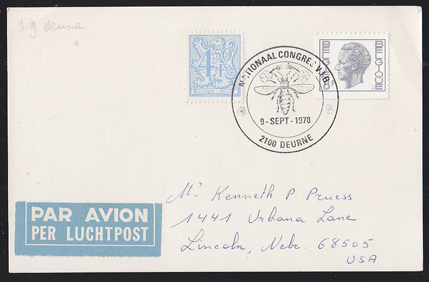 NATIONAAL CONGRES V.I.B.
9-SEPT-1978
2100 DEURNE
PAR AVION
PER LUCHTPOST
Mr Kenneth P. Pruess
1441 Urbana Lane
Lincoln, Nebr. 68505
USA